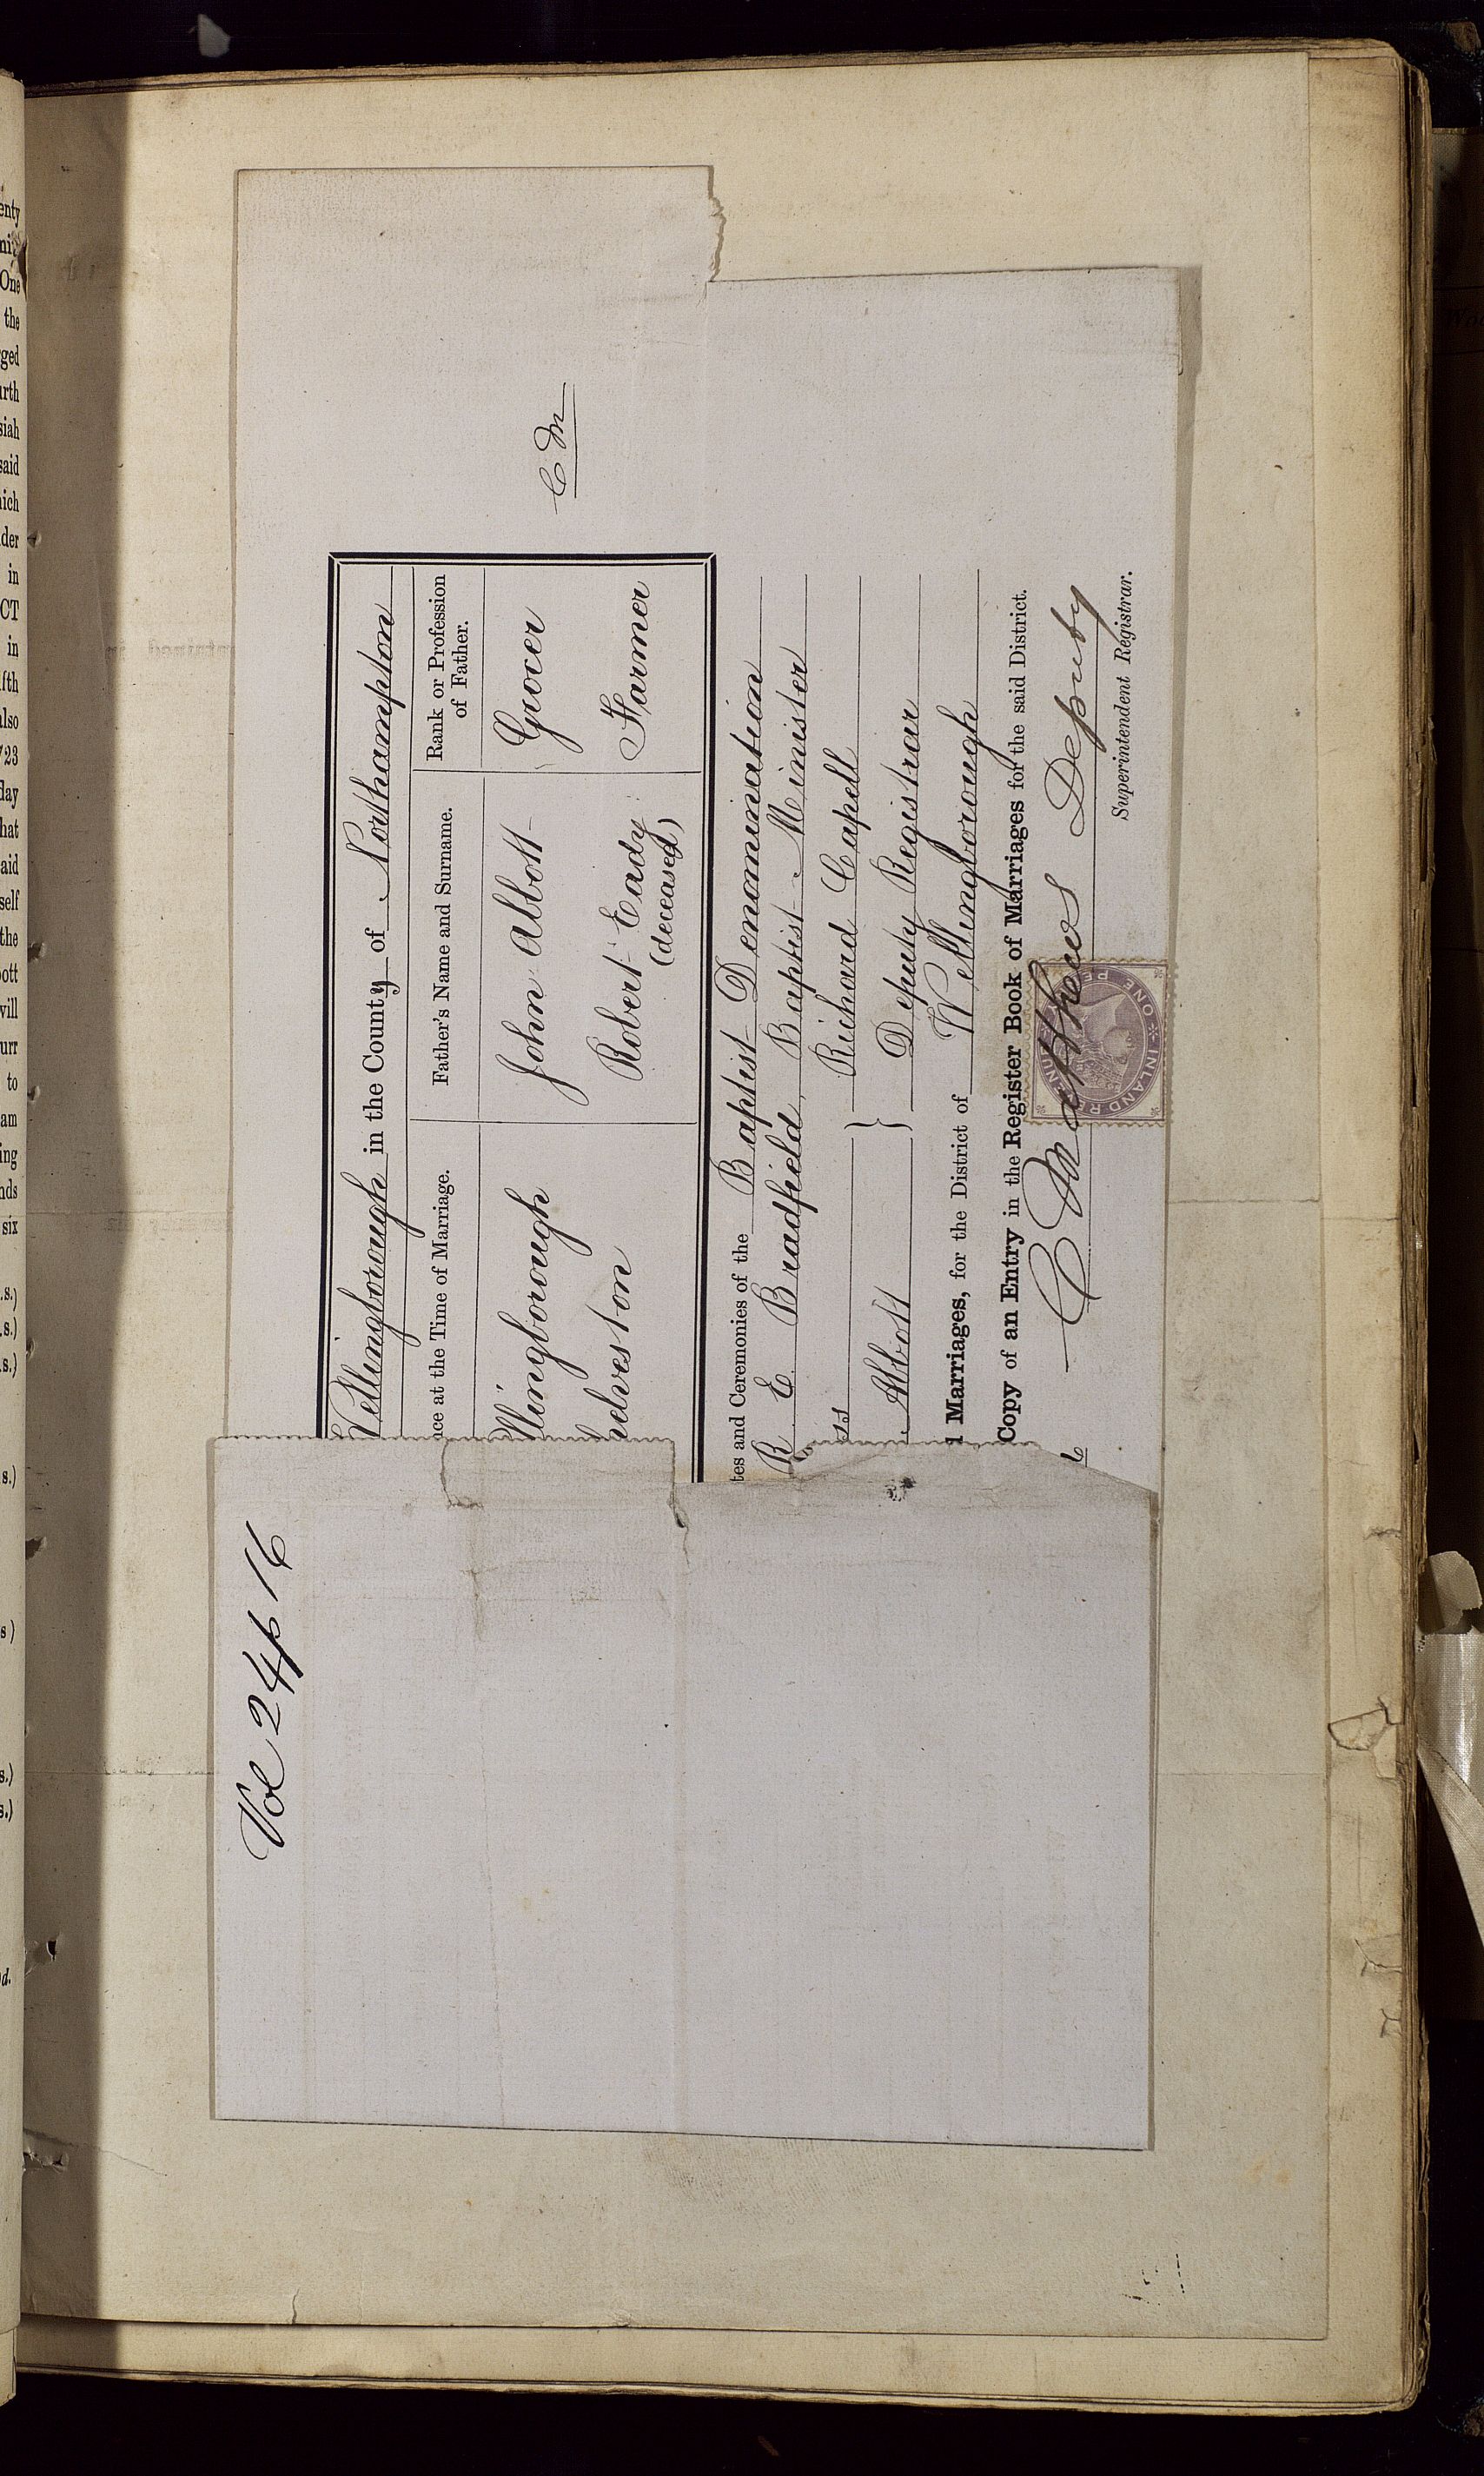 Vol 24 p 16
Wellingborough in the County of Northampton
nce at the Time of Marriage. Father's Name and Surname. Rank or Profession of Father.
llingborough John Abbott Grocer
helveston Robert Eady (deceased) Farmer
C M
tes and Ceremonies of the Baptist Denomination
R E Bradfield Baptist Minister
ss } Richard Capell
Abbott } Deputy Registrar
Marriages, for the District of Wellingborough
Copy of an Entry in the Register Book of Marriages for the said District.
6 C Matthews Deputy
Superintendent Registrar.
INLAND REVENUE ONE PE
enty
One
the
ged
urth
siah
said
hich
der
in
CT
in
fth
also
723
day
hat
aid
self
the
ott
will
urr
to
am
ing
nds
six
.s.)
.s.)
.s.)
s.)
s)
s.)
s.)
d.